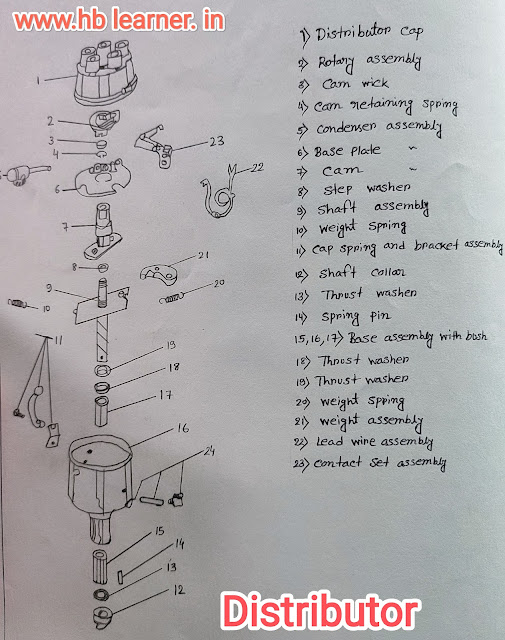 www.hb learner. in
1) Distributor cap
2) Rotary assembly
3) Cam wick
4) Cam retaining spring
5) Condenser assembly
6) Base plate "
7) Cam "
8) Step washer
9) Shaft assembly
10) weight spring
11) cap spring and bracket assembly
12) Shaft collar
13) Thrust washer
14) Spring pin
15, 16, 17) Base assembly with bush
18) Thrust washer
19) Thrust washer
20) weight spring
21) weight assembly
22) Lead wire assembly
23) Contact set assembly
1
2
3
4
23
5
6
22
7
8
21
9
20
10
11
19
18
17
16
24
15
14
13
12
Distributor